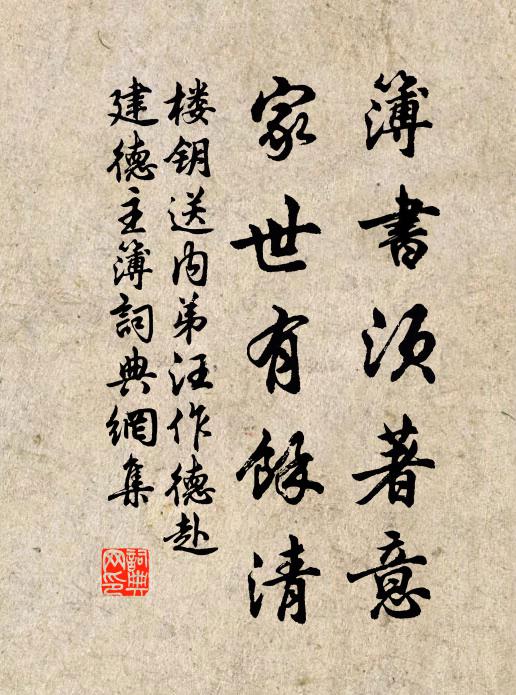 簿書須著意
家世有餘清
楼钥送内弟汪作德赴
建德主簿詞典網集
詞典
网印